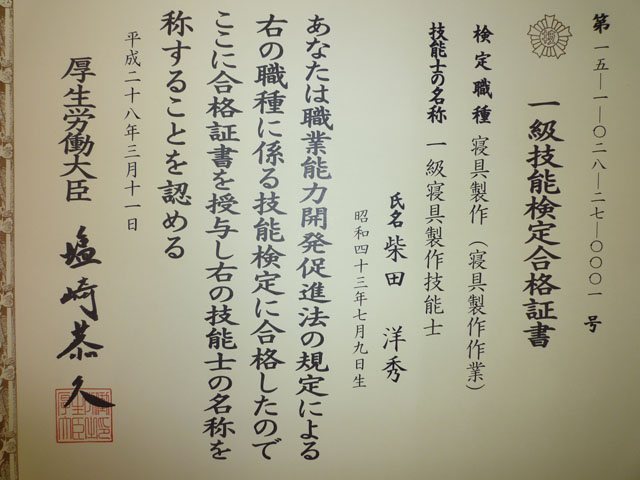 第一五―一―〇二八―二七―〇〇〇一号
一級技能検定合格証書
検定職種 寝具製作(寝具製作作業)
技能士の名称 一級寝具製作技能士
氏名 柴田 洋秀
昭和四十三年七月九日生
あなたは職業能力開発促進法の規定による
右の職種に係る技能検定に合格したので
ここに合格証書を授与し右の技能士の名称を
称することを認める
平成二十八年三月十一日
厚生労働大臣 塩崎恭久